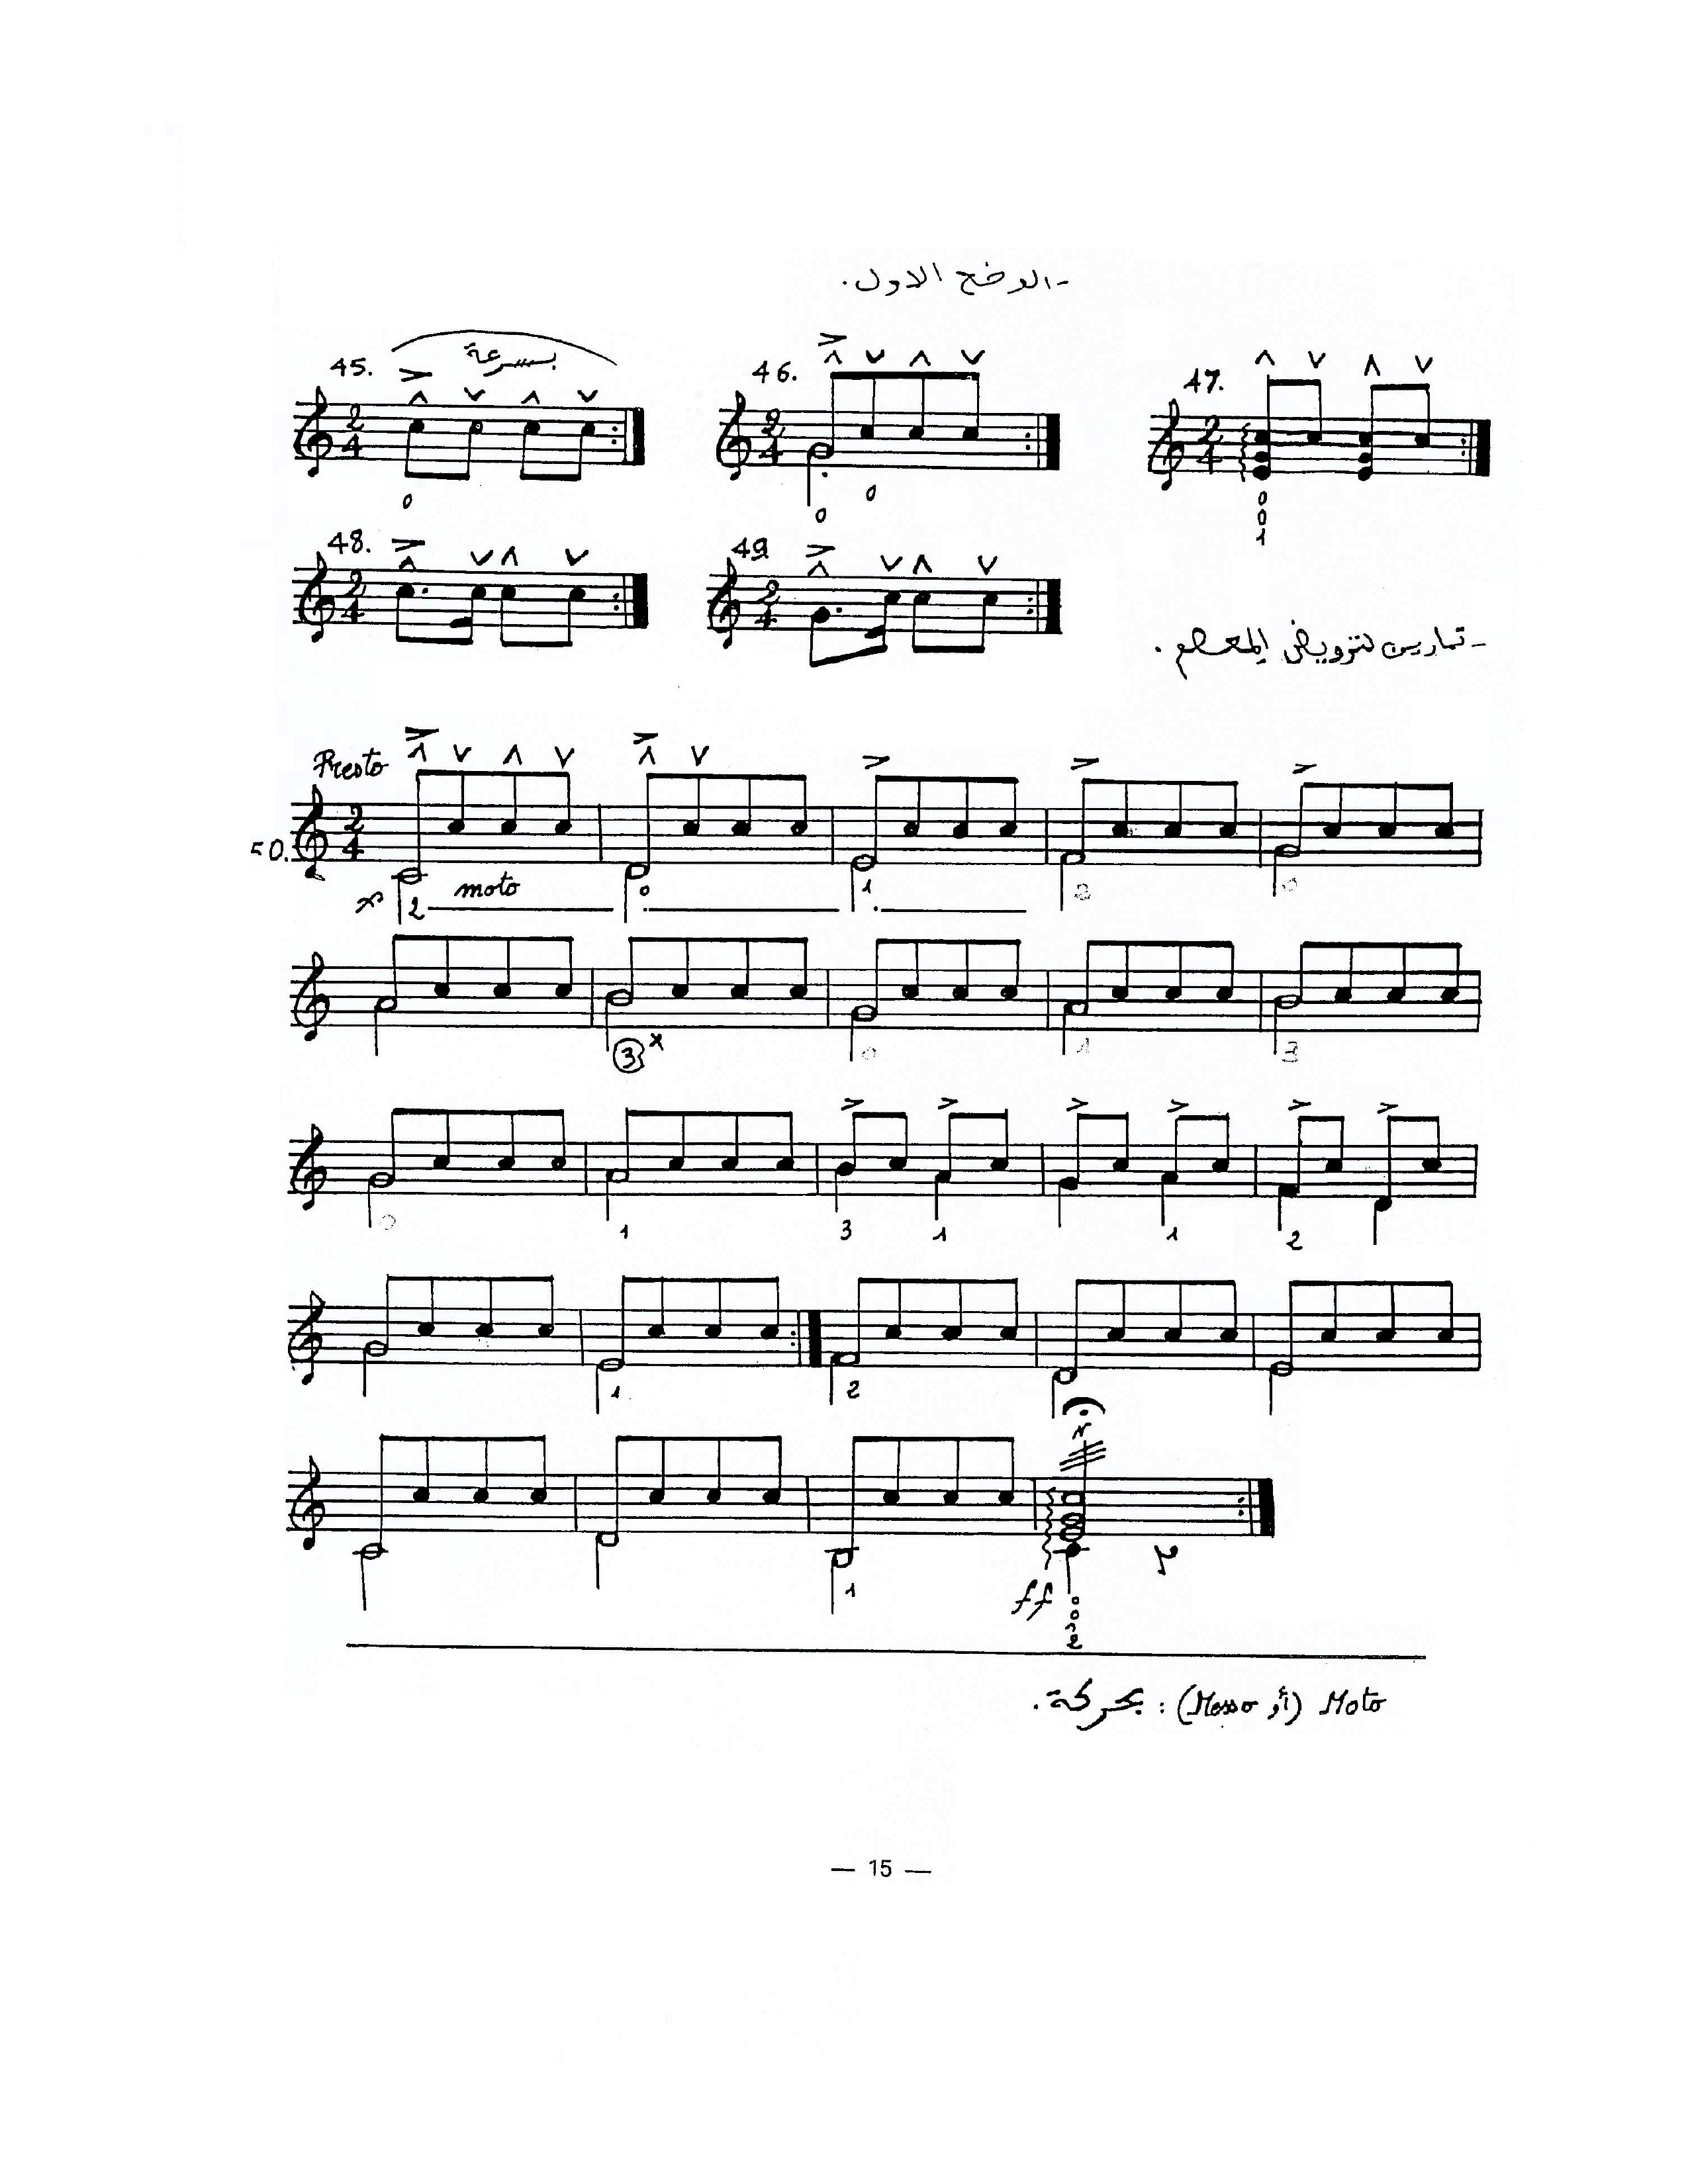 -الوضع الاول.
45. بسرعة
46.
47.
48.
49
-تمارين لترويض المعصم.
Presto
50.
moto
ff
Moto (أو Mosso) : بحركة.
— 15 —